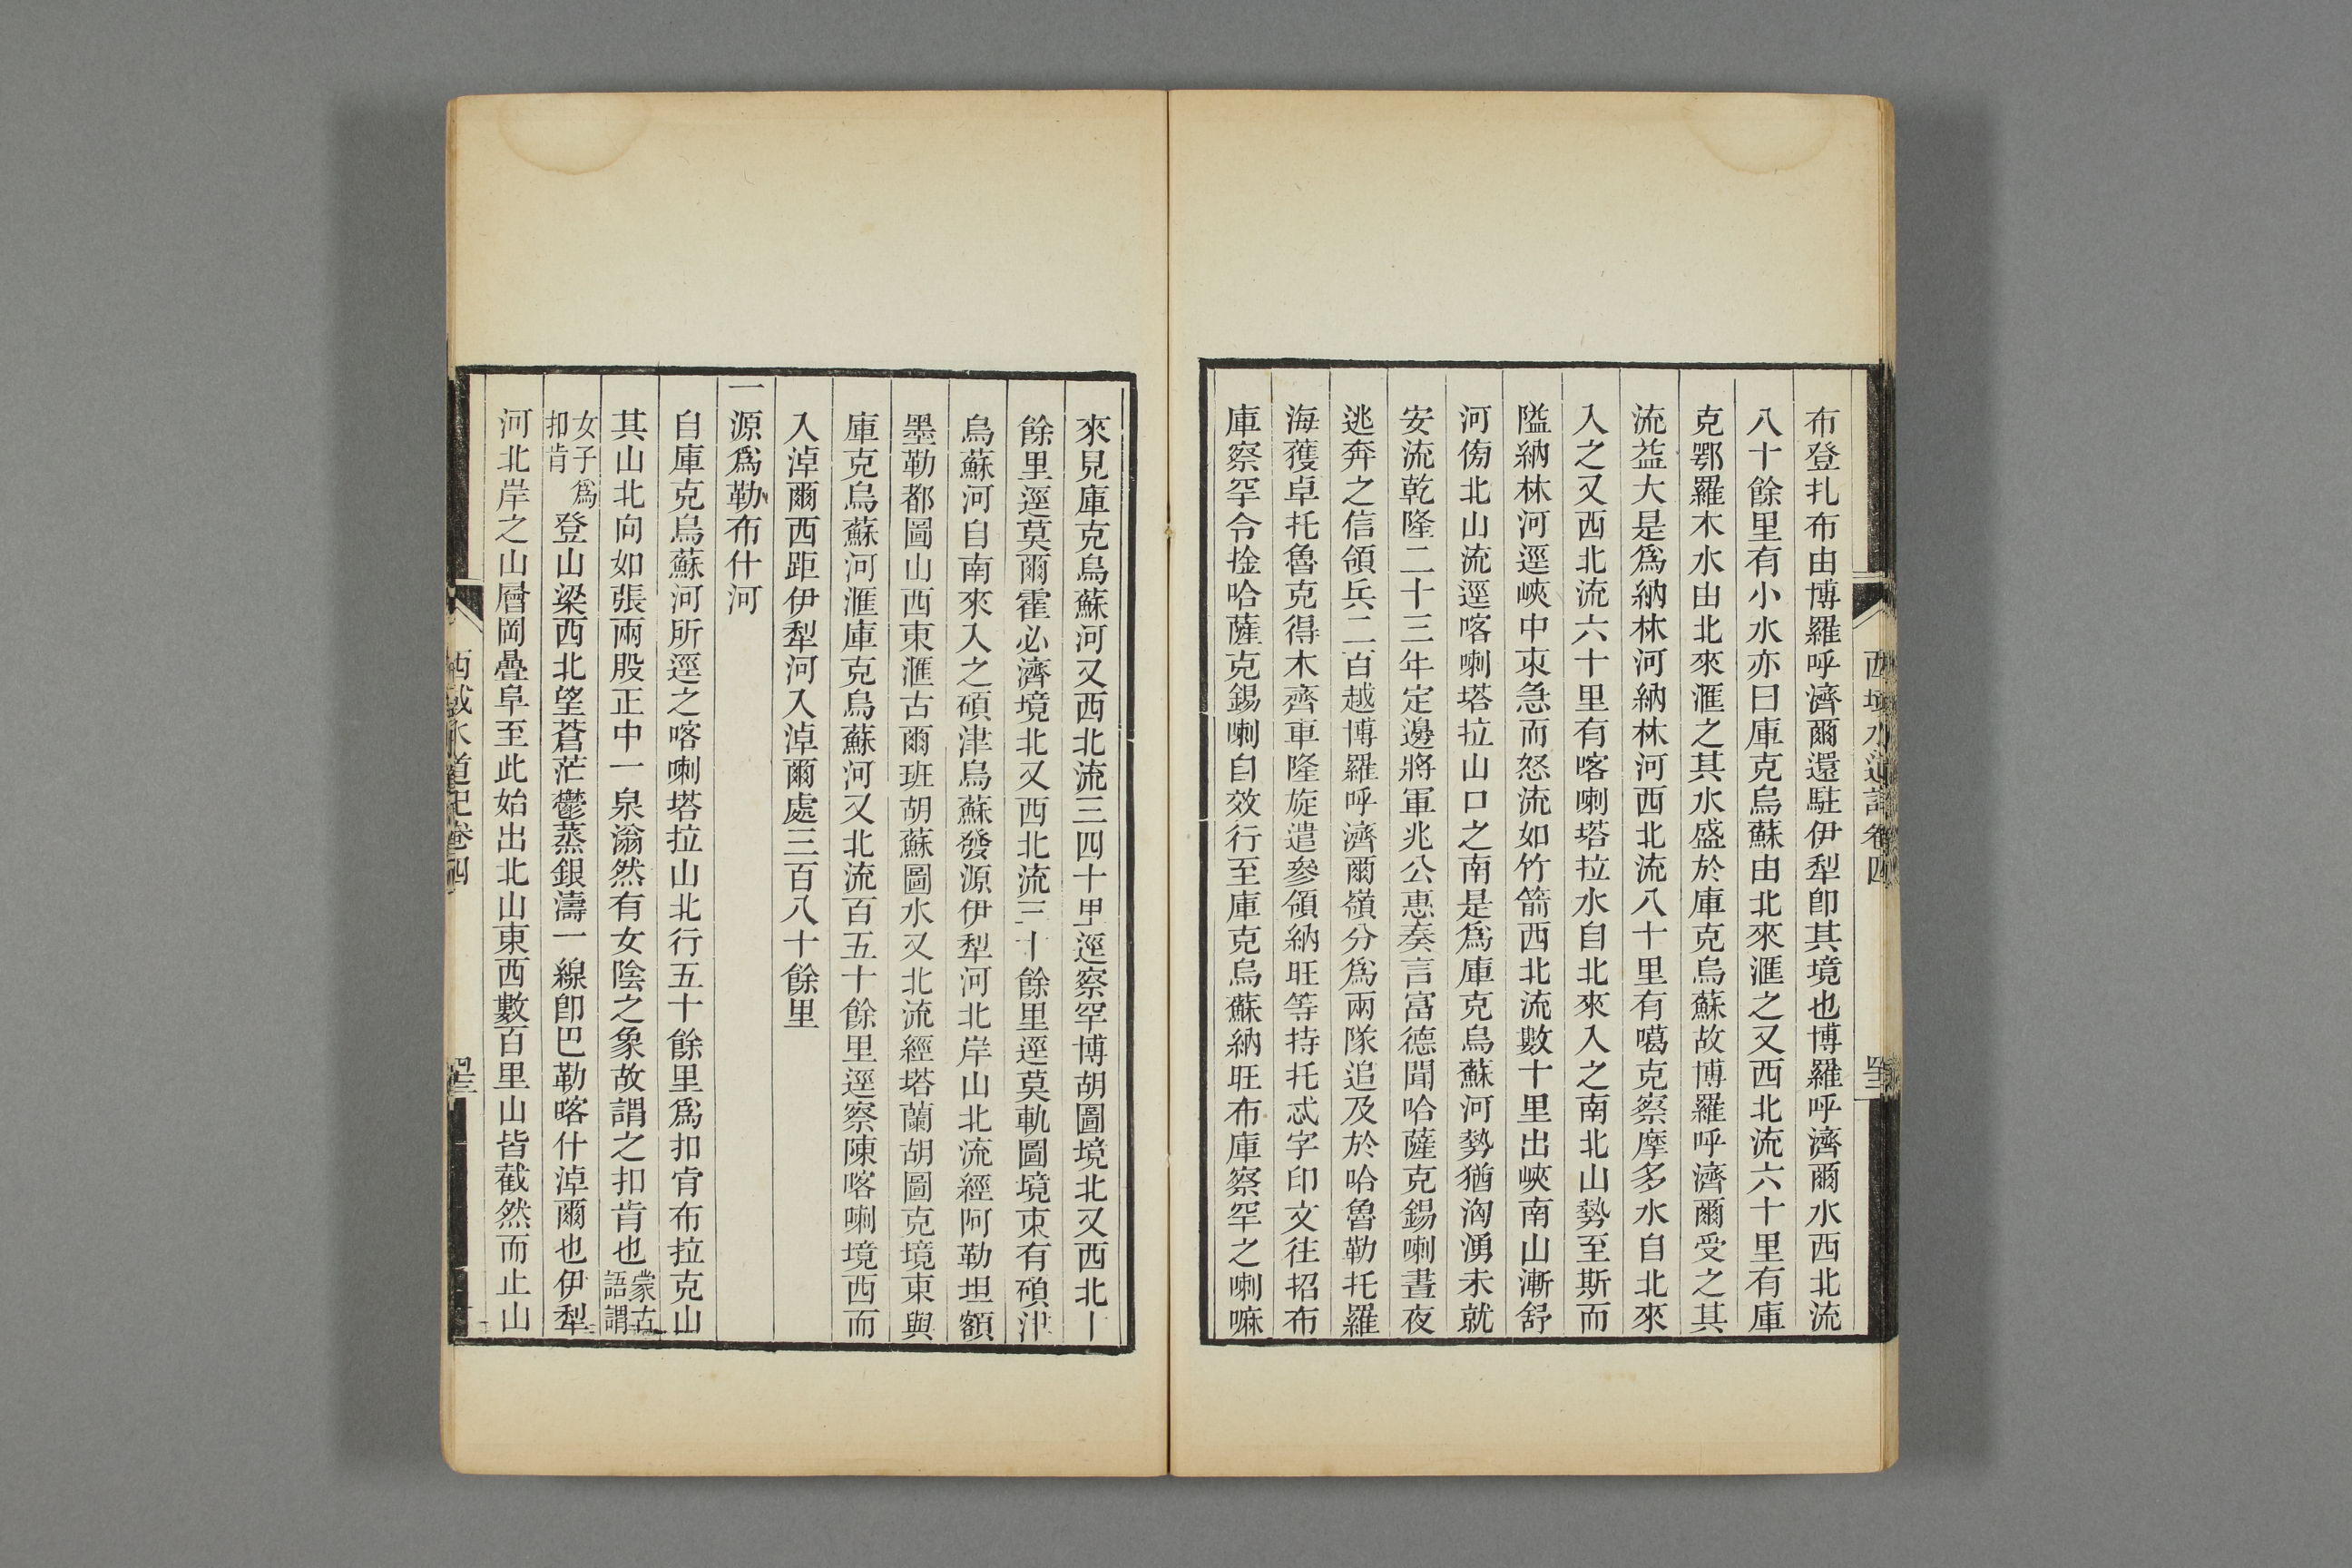 布登扎布由博羅呼濟爾還駐伊犁卽其境也博羅呼濟爾水西北流
八十餘里有小水亦曰庫克烏蘇由北來滙之又西北流六十里有庫
克鄂羅木水由北來滙之其水盛於庫克烏蘇故博羅呼濟爾受之其
流益大是爲納林河納林河西北流八十里有噶克察摩多水自北來
入之又西北流六十里有喀喇塔拉水自北來入之南北山勢至斯而
隘納林河逕峽中束急而怒流如竹箭西北流數十里出峽南山漸舒
河傍北山流逕喀喇塔拉山口之南是爲庫克烏蘇河勢猶洶湧未就
安流乾隆二十三年定邊將軍兆公惠奏言富德聞哈薩克錫喇晝夜
逃奔之信領兵二百越博羅呼濟爾嶺分爲兩隊追及於哈魯勒托羅
海獲卓托魯克得木齊車隆旋遣參領納旺等持托忒字印文往招布
庫察罕令捦哈薩克錫喇自效行至庫克烏蘇納旺布庫察罕之喇嘛
西域水道記卷四
來見庫克烏蘇河又西北流三四十里逕察罕博胡圖境北又西北十
餘里逕莫爾霍必濟境北又西北流三十餘里逕莫軌圖境東有碩津
烏蘇河自南來入之碩津烏蘇發源伊犁河北岸山北流經阿勒坦額
墨勒都圖山西東滙古爾班胡蘇圖水又北流經塔蘭胡圖克境東與
庫克烏蘇河滙庫克烏蘇河又北流百五十餘里逕察陳喀喇境西而
入淖爾西距伊犁河入淖爾處三百八十餘里
一源爲勒布什河
自庫克烏蘇河所逕之喀喇塔拉山北行五十餘里爲扣肯布拉克山
其山北向如張兩股正中一泉滃然有女陰之象故謂之扣肯也蒙古語謂
女子爲扣肯登山梁西北望蒼茫鬱蒸銀濤一線卽巴勒喀什淖爾也伊犁
河北岸之山層岡疊阜至此始出北山東西數百里山皆截然而止山
西域水道記卷四